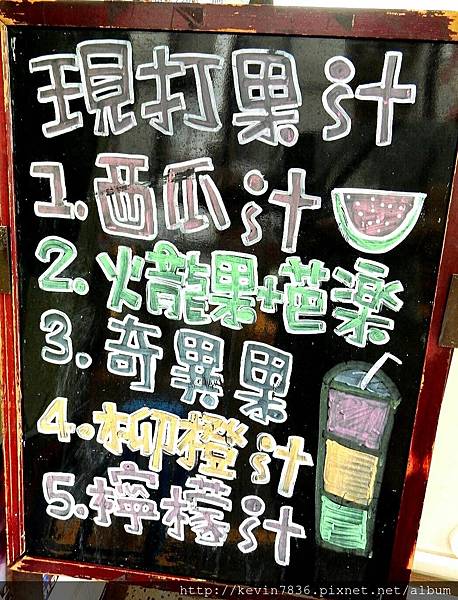 現打果汁
1.西瓜汁
2.火龍果+芭樂
3.奇異果
4.柳橙汁
5.檸檬汁
http://kevin7836.pixnet.net/album